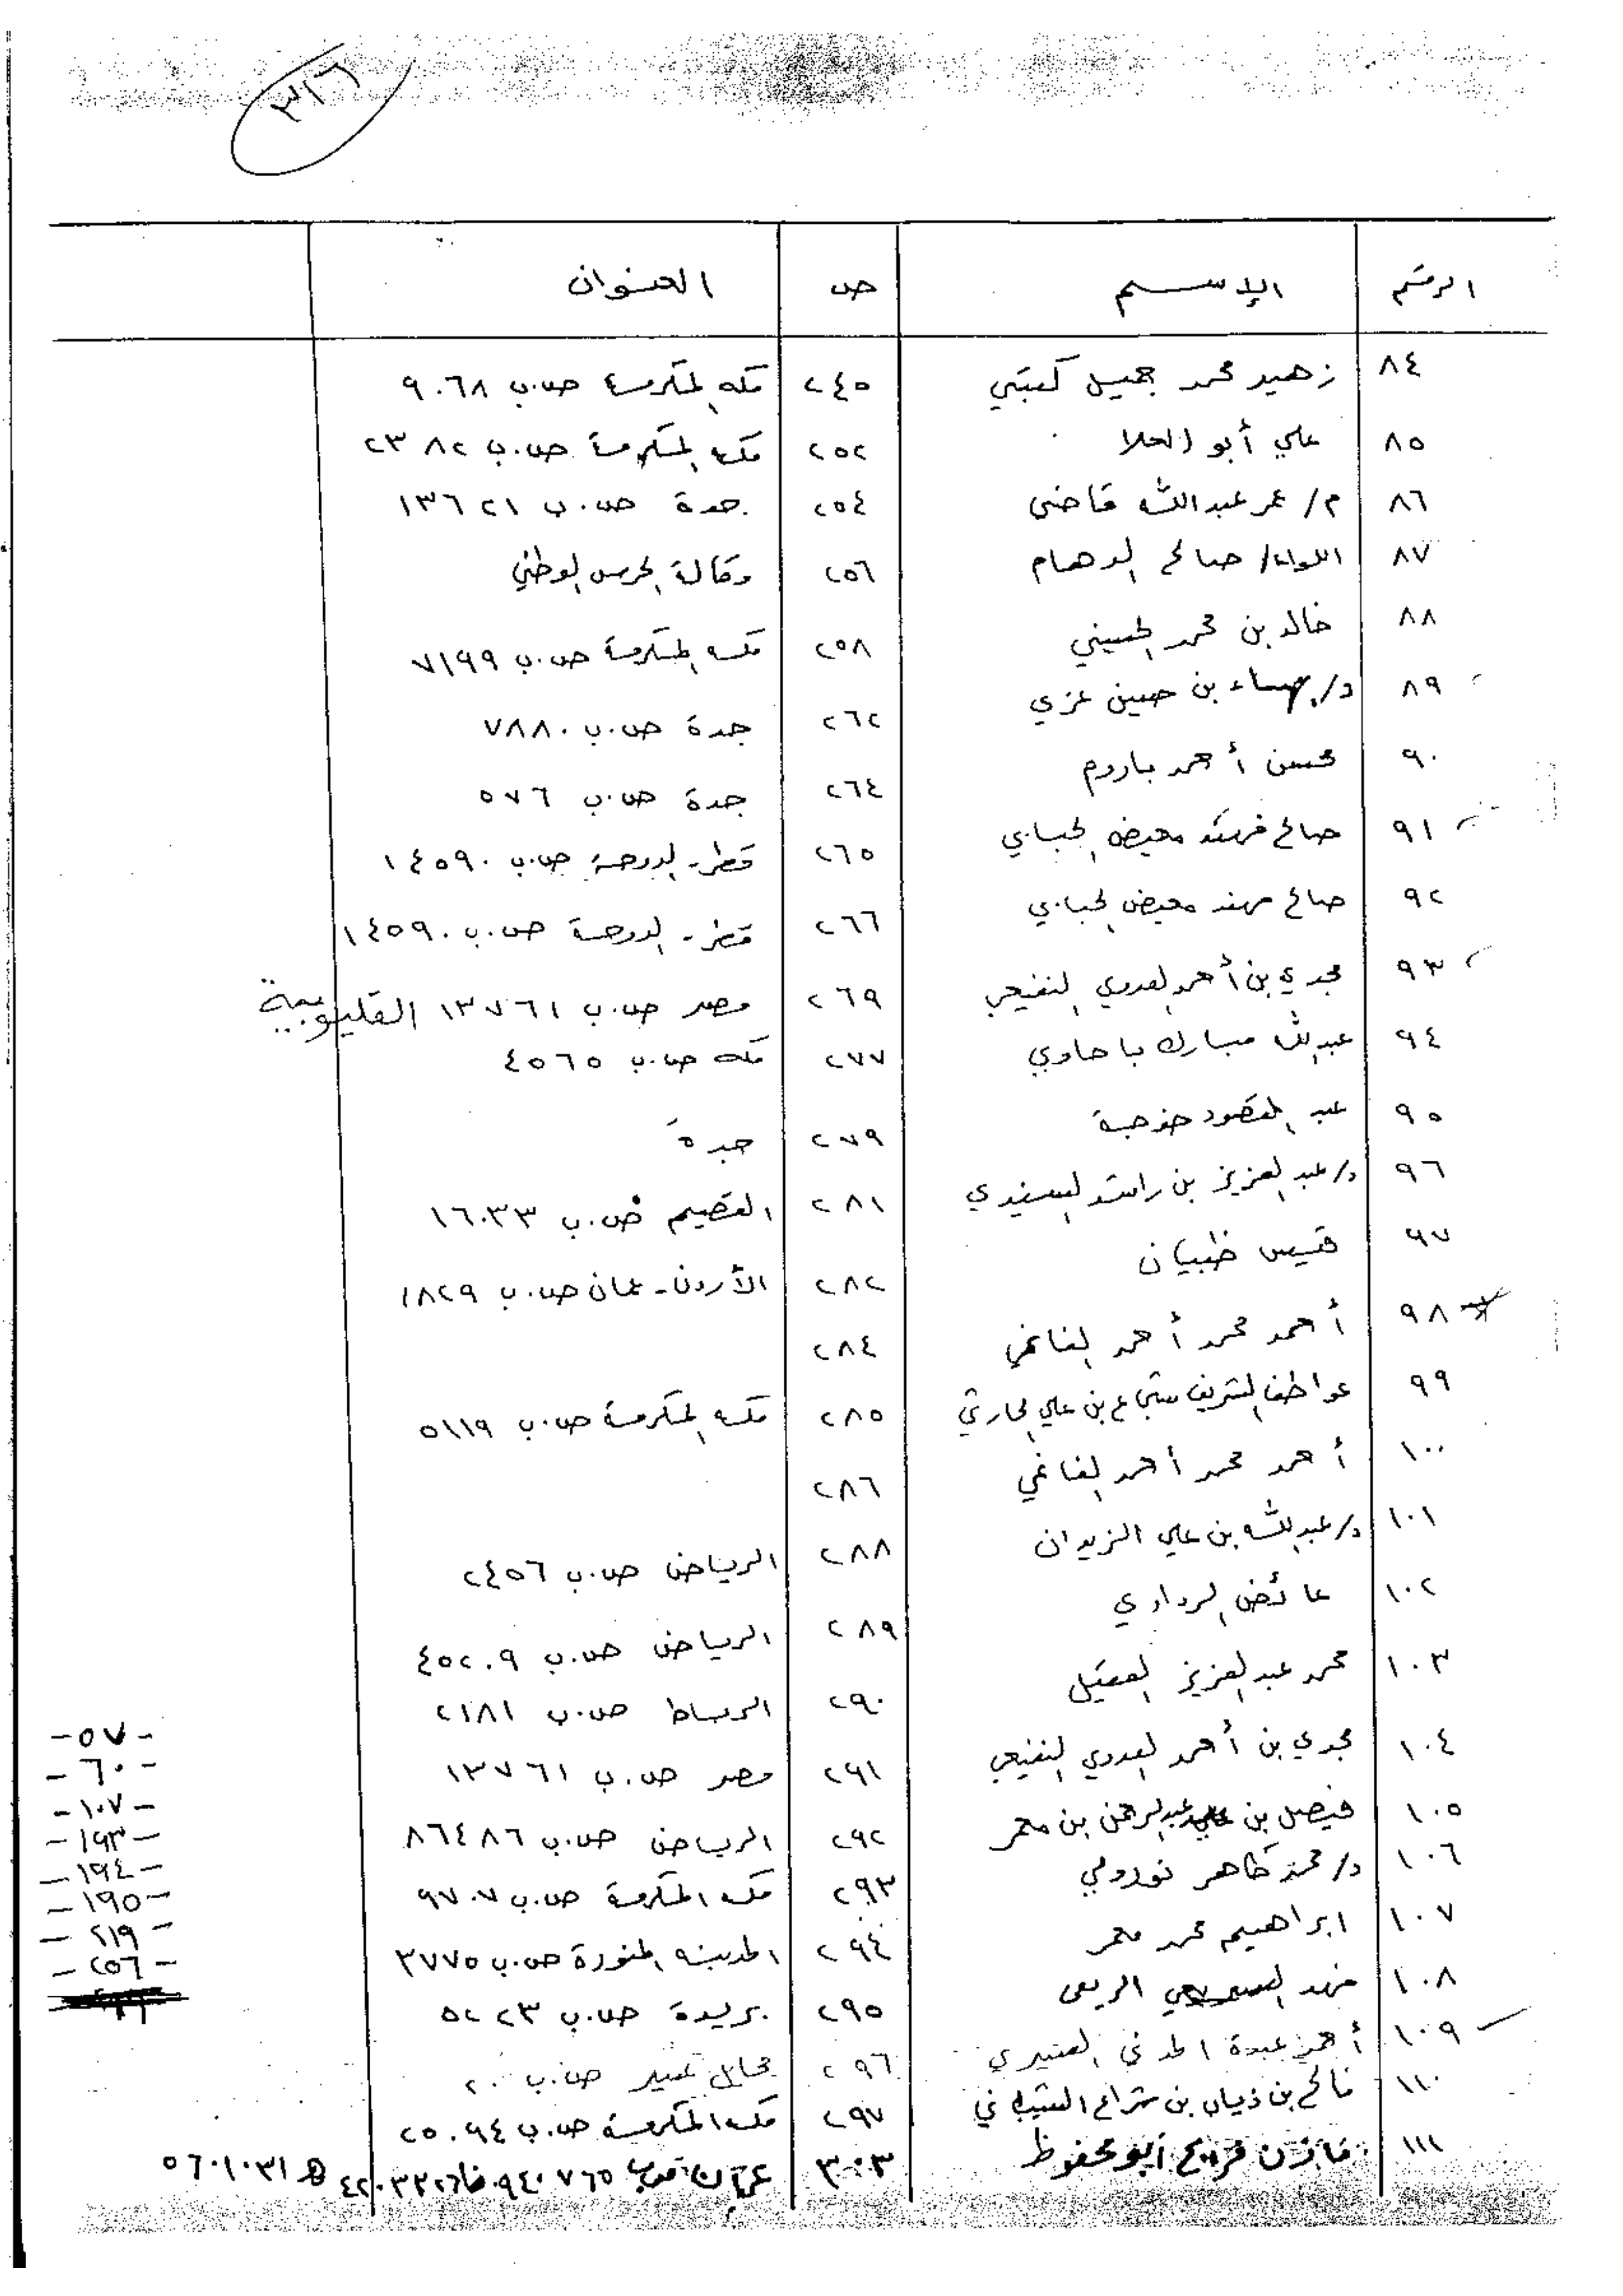 ٣١٦
الرقم الإسم ص العنوان
٨٤ زهير محمد جميل كتبي ٢٤٥ مكه المكرمة ص.ب ٩٠٦٨
٨٥ علي أبو العلا ٢٥٢ مكه المكرمة ص.ب ٢٣٨٢
٨٦ م/ عمر عبدالله قاضي ٢٥٤ جدة ص.ب ١٣٦٢١
٨٧ اللواء/ صالح الدهام ٢٥٦ وكالة الحرس الوطني
٨٨ خالد بن محمد الحسيني ٢٥٨ مكه المكرمة ص.ب ٧١٩٩
٨٩ د/ بهاء بن حسين عزي ٢٦٢ جدة ص.ب ٧٨٨٠
٩٠ محسن أحمد باروم ٢٦٤ جدة ص.ب ٥٧٦
٩١ صالح فهد معيض الحبابي ٢٦٥ قطر - الدوحة ص.ب ١٤٥٩٠
٩٢ صالح فهد معيض الحبابي ٢٦٦ قطر - الدوحة ص.ب ١٤٥٩٠
٩٣ مجدي بن أحمد العدوي النفيعي ٢٦٩ مصر ص.ب ١٣٧٦١ القليوبية
٩٤ عبدالله مبارك باحاوي ٢٧٧ مكه ص.ب ٤٥٦٥
٩٥ عبد المقصود خوجة ٢٧٩ جدة
٩٦ د/ عبد العزيز بن راشد السنيدي ٢٨١ القصيم ص.ب ١٦٠٣٣
٩٧ قيس ظبيان ٢٨٢ الأردن - عمان ص.ب ١٨٢٩
٩٨ أحمد محمد أحمد الغانمي ٢٨٤
٩٩ عواطف الشريف شجاع بن علي الحارثي ٢٨٥ مكه المكرمة ص.ب ٥١١٩
١٠٠ أحمد محمد أحمد الغانمي ٢٨٦
١٠١ د/ عبدالله بن علي الزيدان ٢٨٨ الرياض ص.ب ٢٤٥٦
١٠٢ عائض الردادي ٢٨٩ الرياض ص.ب ٤٥٢٠٩
١٠٣ محمد عبد العزيز العقيل ٢٩٠ الرباط ص.ب ٢١٨١
١٠٤ مجدي بن أحمد العدوي النفيعي ٢٩١ مصر ص.ب ١٣٧٦١
١٠٥ فيصل بن عبدالرحمن بن معمر ٢٩٢ الرياض ص.ب ٨٦٤٨٦
١٠٦ د/ محمد طاهر نورولي ٢٩٣ مكه المكرمة ص.ب ٩٧٠٧
١٠٧ ابراهيم محمد معمر ٢٩٤ المدينه المنورة ص.ب ٣٧٧٥
١٠٨ فهد الربعي ٢٩٥ بريدة ص.ب ٥٢٢٣
١٠٩ أحمد عبدة المدني العسيري ٢٩٦ محايل عسير ص.ب ٢٠
١١٠ فالح بن ذبيان بن شراع الشيباني ٢٩٧ مكه المكرمة ص.ب ٢٥٠٩٤
١١١ مازن فريح أبو محفوظ ٣٠٣ عمان ص.ب ٩٤٠٧٦٥ فا ٤٢٠٣٣٢٦ ه ٥٦٠١٠٣١
-٥٧-
-٦٠-
-١٠٧-
-١٩٣-
-١٩٤-
-١٩٥-
-٢١٩-
-٢٥٦-